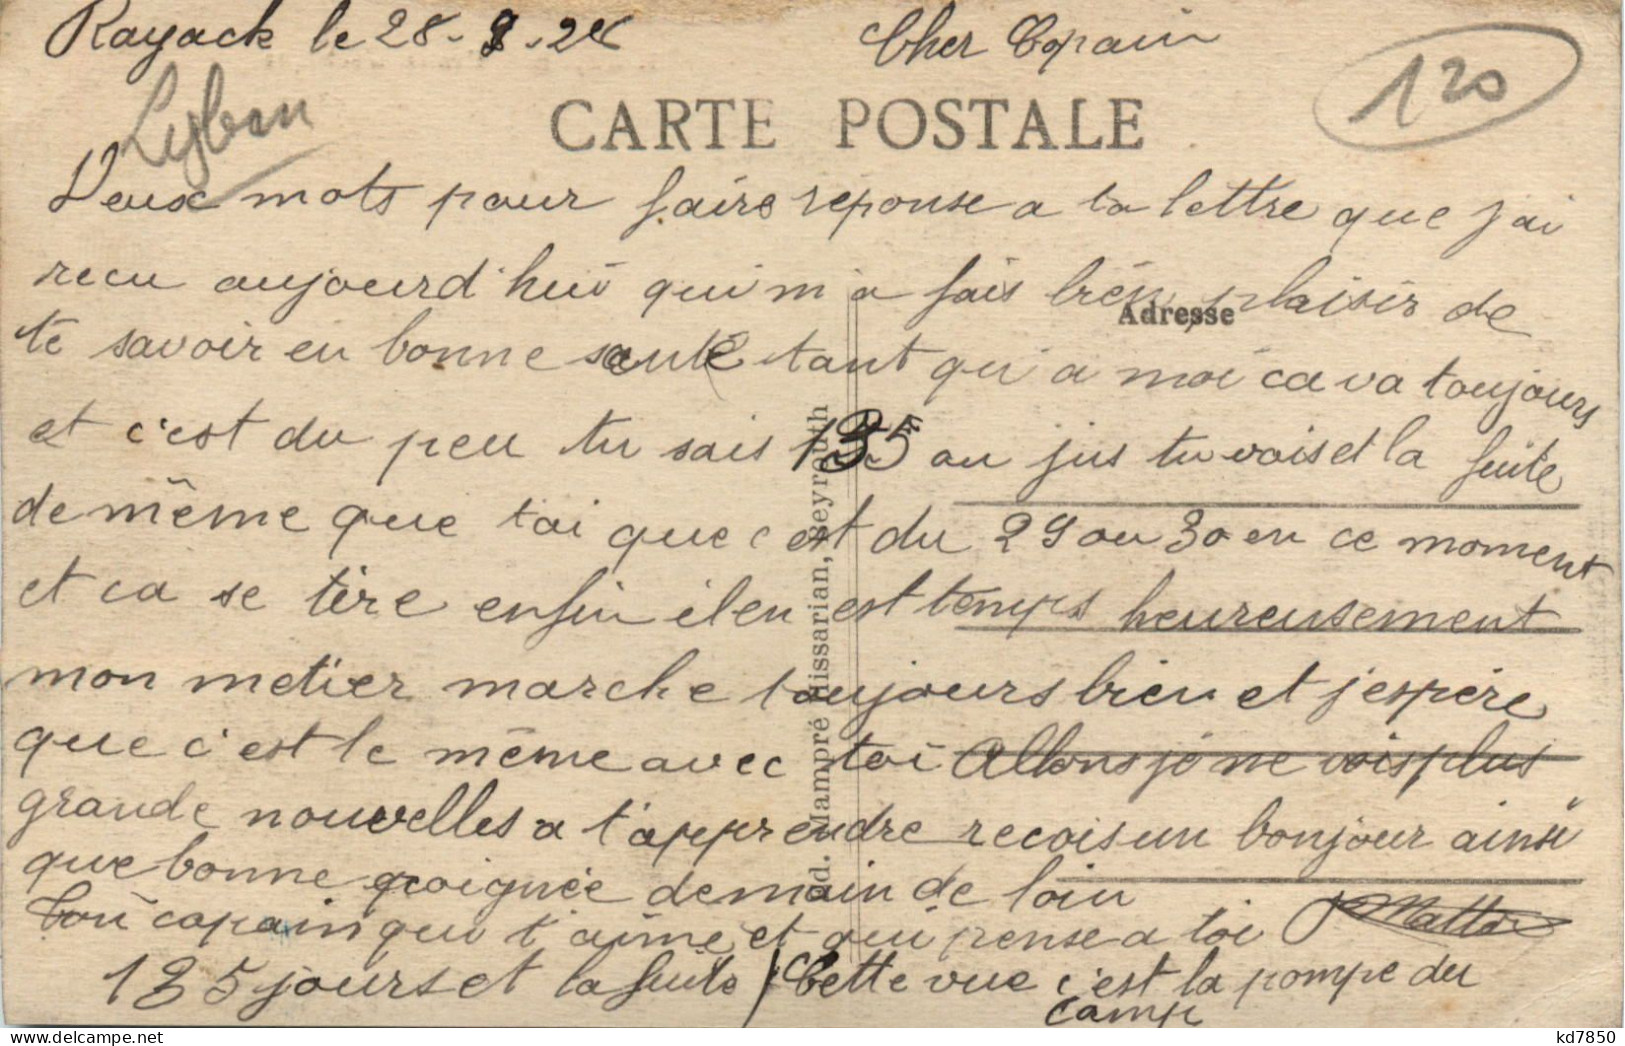 Rayack le 28-8-24 Cher Copain
Lyban
120
CARTE POSTALE
Deux mots pour faire reponse a ta lettre que j'ai
recu aujourd'hui qui m'a fais bien plaisir de
Adresse
te savoir en bonne santé tant qu'a moi ca va toujours
et c'est du peu tu sais 135 au jus tu vois et la suite
de même que toi que c'est du 29 ou 30 en ce moment
et ca se tire enfin il en est temps heureusement
mon metier marche toujours bien et j'espère
que c'est le même avec toi Allons je ne vois plus
grande nouvelles a t'apprendre recois un bonjour ainsi
que bonne poignée de main de loin
Ton copain qui t'aime et qui pense a toi
135 jours et la suite / Cette vue c'est la pompe du
camp
Ed. Mampré Hissarian, Beyrouth
kd7850